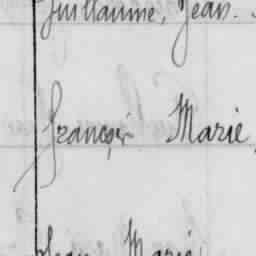 Guillaume, Jean.
François Marie,
Jean Marie